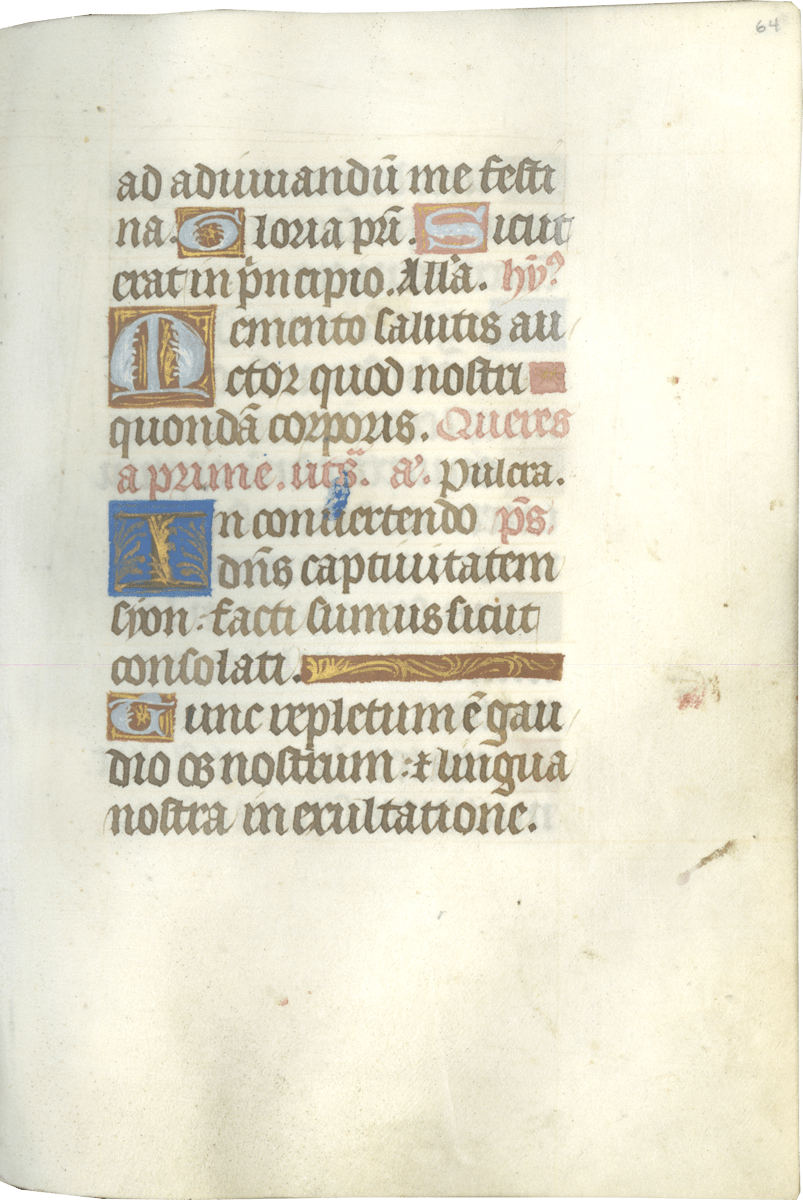 64
ad adiuuandū me festi
na. Gloria pr̄i. Sicut
erat in pⁱncipio. All'a. hỹ⁹
Memento salutis au
ctor quod nostri
quondā corporis. Queres
a prime. ut s̄. a͞. Pulcra.
In conuertendo p̄s.
dn̄s captiuitatem
syon: facti sumus sicut
consolati.
Tunc repletum ē gau
dio os nostrum: ⁊ lingua
nostra in exultatione.